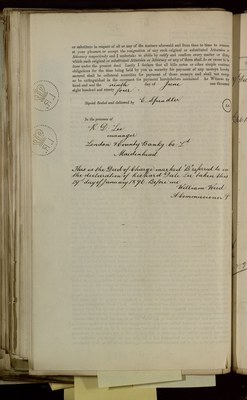 or substitutes in respect of all or any of the matters aforesaid and from time to time to remove
at your pleasure or accept the resignation of any such original or substituted
Attorney respectively and I undertake to ratify and confirm every matter or thing
which such original or substituted Attorneys or Attorney or any of them shall do or cause to be
done under the powers And I declare that all bills notes or other simple
obligations for the time being held by you as security for payment of any moneys hereby
secured shall be collateral securities for payment of those moneys and shall not
or be extinguished in the covenant for payment hereinbefore contained. As Witness my
hand and seal the ninth day of June one thousand
eight hundred and ninety four
Signed Sealed and delivered by C. Spindler
In the presence of
R. D. Lee
manager
London & County Bankg Co. Ld
Maidenhead
This is the Deed of Charge marked "B" referred to in
the declaration of Richard Lee taken this
29th day of January 1896. Before me
William Weed
A Commissioner